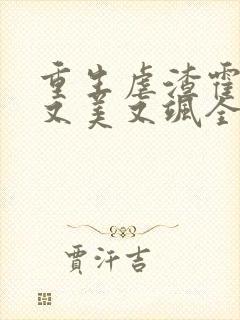 重生虐渣霍
又美又飒全
贾汗吉